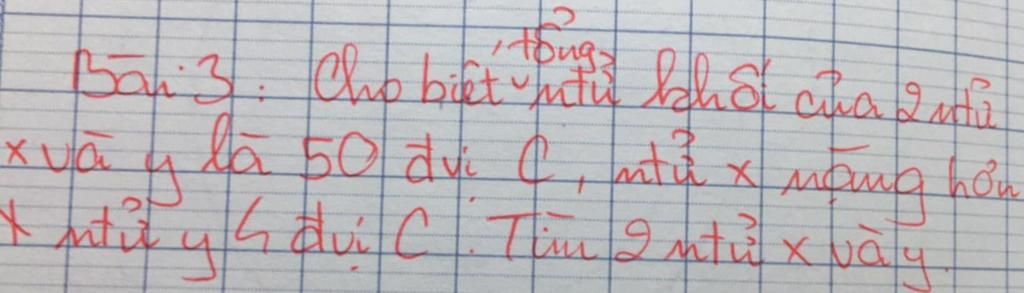 Bài 3: Cho biết tổng ntử khối của 2 ntử
x và y là 50 đvị C, ntử x nặng hơn
ntử y 4 đvị C. Tìm 2 ntử x và y.